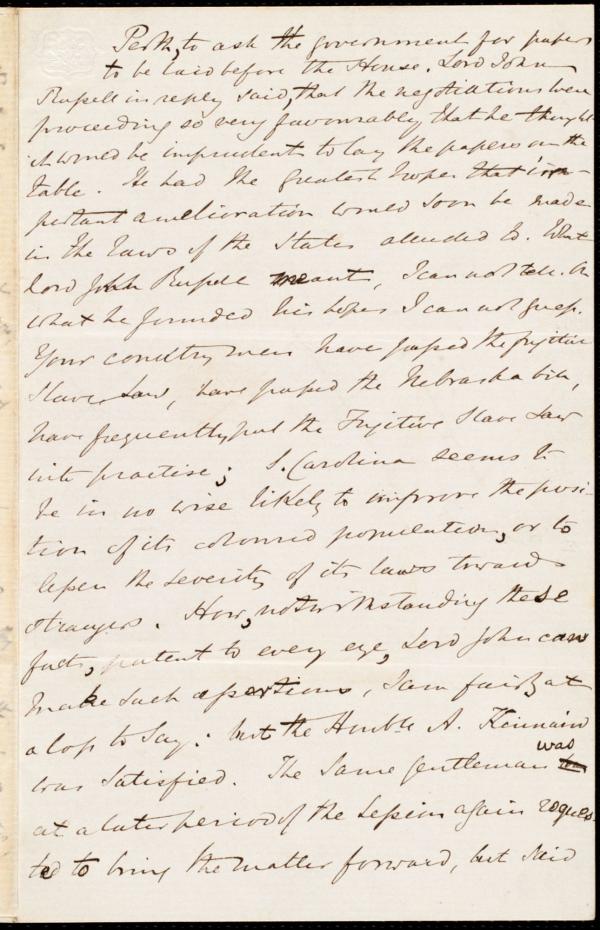 Perth, to ask the government for papers
to be laid before the House. Lord John
Russell in reply said, that the negotiations were
proceeding so very favourably, that he thought
it would be imprudent to lay the papers on the
table. He had the greatest hopes that im-
portant amelioration would soon be made
in the laws of the States alluded to. What
Lord John Russell meant, I can not tell. On
what he founded his hopes I can not guess.
Your countrymen have passed the fugitive
Slave Law, have passed the Nebraska bill,
have frequently put the Fugitive Slave Law
into practise; S. Carolina seems to
be in no wise likely to improve the posi-
tion of its coloured population, or to
lessen the severity of its laws towards
strangers. How, notwithstanding these
facts, patent to every eye, Lord John can
make such assertions, I am fairly at
a loss to say: but the Honble A. Kinnaird
was satisfied. The same gentleman was
at a later period of the Session again reques-
ted to bring the matter forward, but said